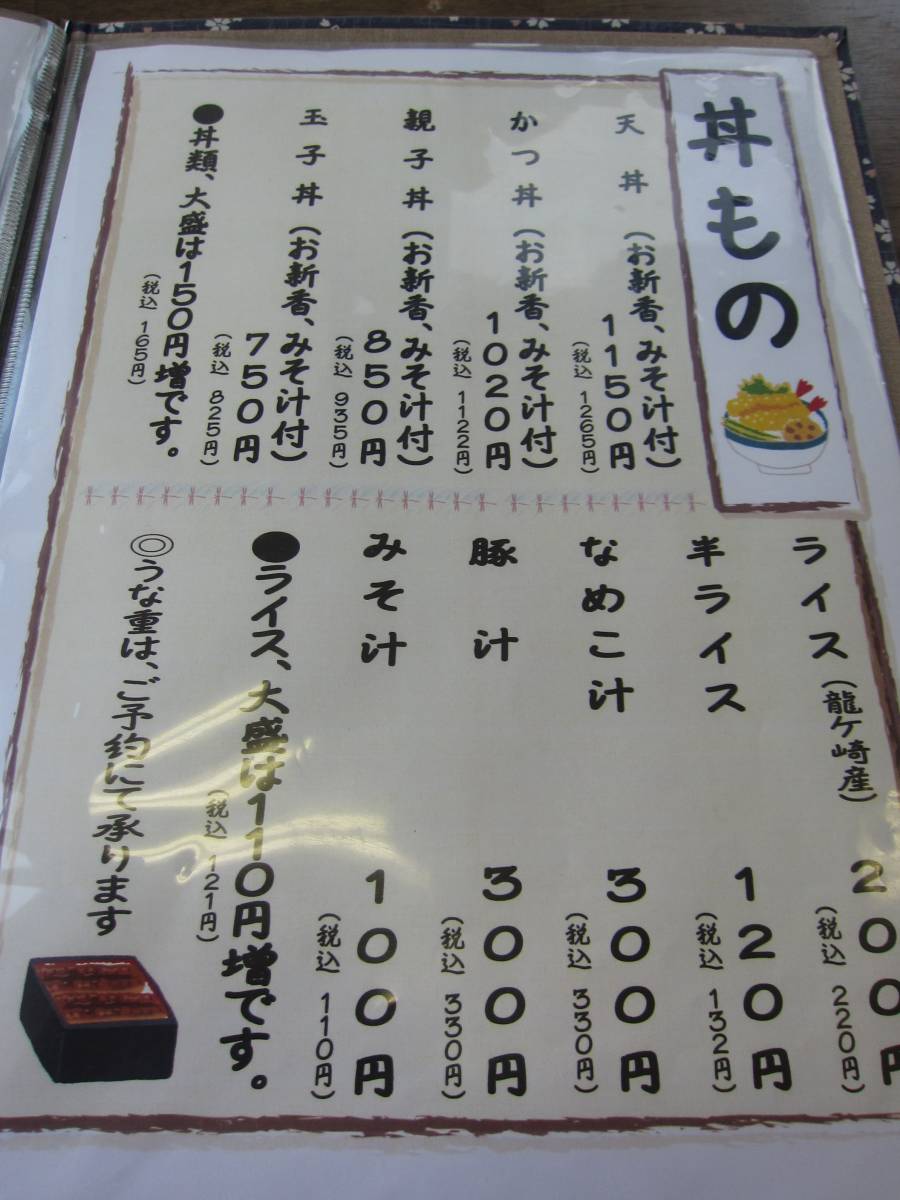 丼もの
天丼（お新香、みそ汁付）
1150円
（税込 1265円）
かつ丼（お新香、みそ汁付）
1020円
（税込 1122円）
親子丼（お新香、みそ汁付）
850円
（税込 935円）
玉子丼（お新香、みそ汁付）
750円
（税込 825円）
●丼類、大盛は150円増です。
（税込 165円）
ライス（龍ケ崎産）
200円
（税込 220円）
半ライス
120円
（税込 132円）
なめこ汁
300円
（税込 330円）
豚汁
300円
（税込 330円）
みそ汁
100円
（税込 110円）
●ライス、大盛は110円増です。
（税込 121円）
◎うな重は、ご予約にて承ります